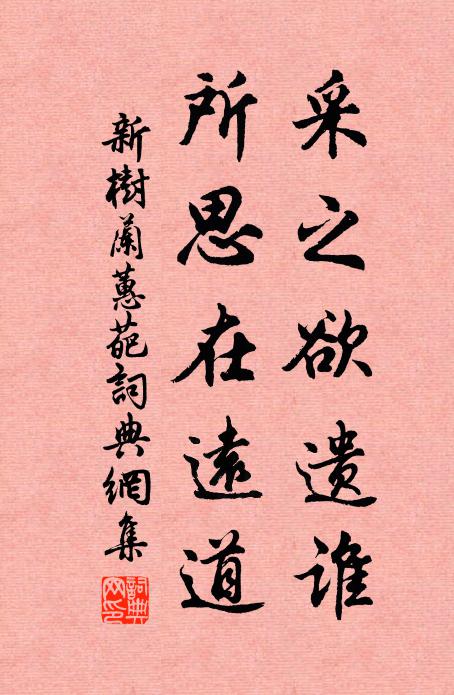 采之欲遗谁
所思在遠道
新樹蘭蕙葩詞典網集
詞典网印